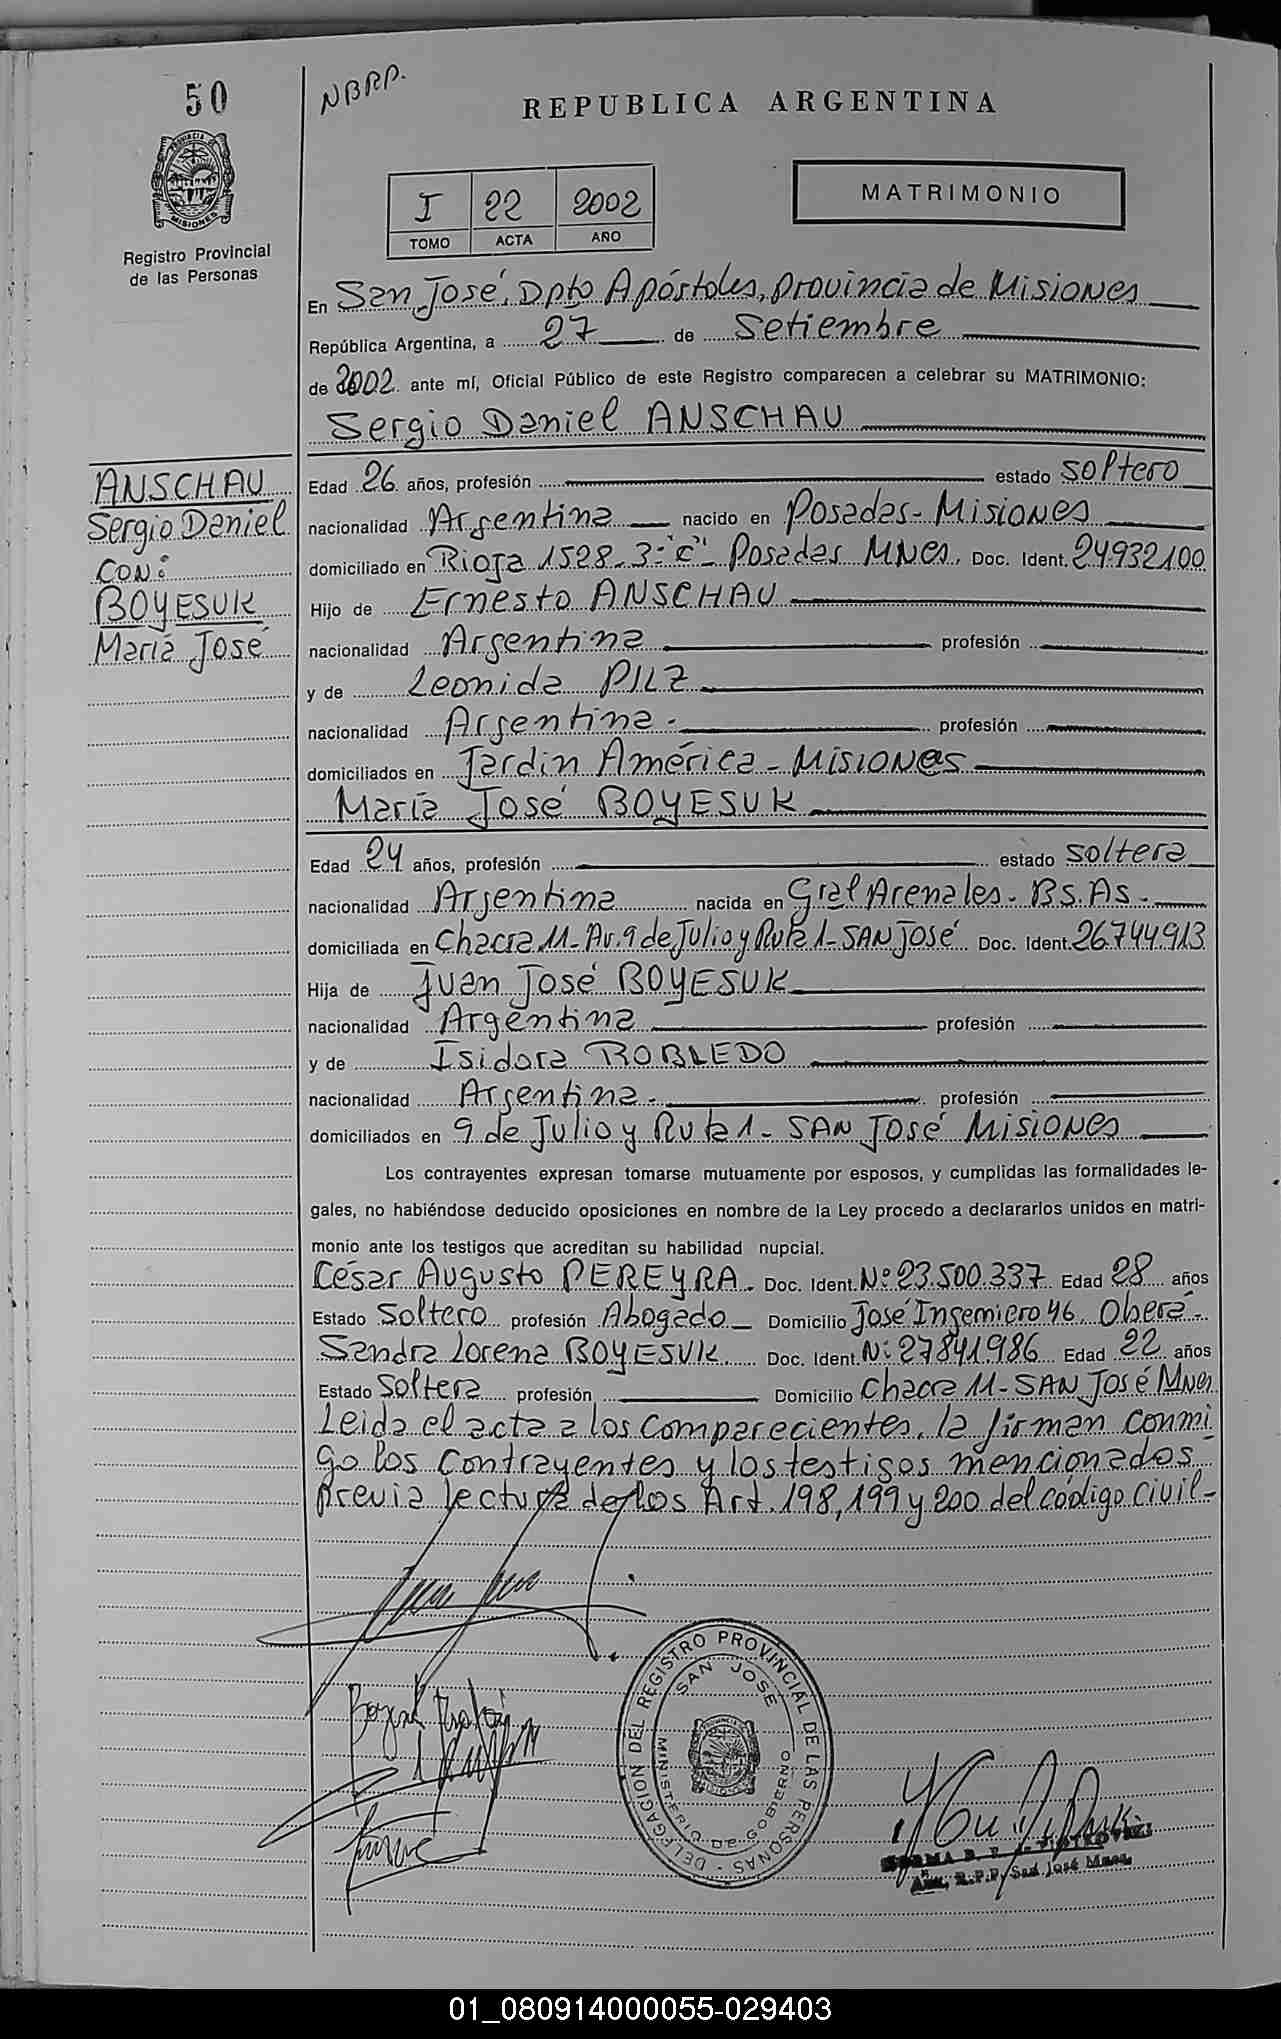 50
NBRP.
REPUBLICA ARGENTINA
PROVINCIA DE MISIONES
Registro Provincial
de las Personas
I 22 2002
TOMO ACTA AÑO
MATRIMONIO
En San José, Dpto Apóstoles, Provincia de Misiones
República Argentina, a 27 de Setiembre
de 2002 ante mí, Oficial Público de este Registro comparecen a celebrar su MATRIMONIO:
Sergio Daniel ANSCHAU
ANSCHAU
Sergio Daniel
CON:
BOYESUK
María José
Edad 26 años, profesión estado soltero
nacionalidad Argentina nacido en Posadas - Misiones
domiciliado en Rioja 1528 - 3: "C" - Posadas Mnes. Doc. Ident. 24932100
Hijo de Ernesto ANSCHAU
nacionalidad Argentina profesión
y de Leonida PILZ
nacionalidad Argentina. profesión
domiciliados en Jardin América - Misiones
María José BOYESUK
Edad 24 años, profesión estado soltera
nacionalidad Argentina nacida en Gral Arenales - BS. AS -
domiciliada en Chacra 11 - Av. 9 de Julio y Ruta 1 - SAN José Doc. Ident. 26.744.913
Hija de Juan José BOYESUK
nacionalidad Argentina profesión
y de Isidora ROBLEDO
nacionalidad Argentina. profesión
domiciliados en 9 de Julio y Ruta 1 - SAN José Misiones
Los contrayentes expresan tomarse mutuamente por esposos, y cumplidas las formalidades le-
gales, no habiéndose deducido oposiciones en nombre de la Ley procedo a declararlos unidos en matri-
monio ante los testigos que acreditan su habilidad nupcial.
César Augusto PEREYRA. Doc. Ident. Nº 23.500.337 Edad 28 años
Estado Soltero profesión Abogado Domicilio José Ingeniero 46. Oberá -
Sandra Lorena BOYESUK Doc. Ident. Nº 27841.986 Edad 22 años
Estado Soltera profesión Domicilio Chacra 11 - SAN José Mnes
Leida el acta a los comparecientes, la firman conmi
go los contrayentes y los testigos mencionados
previa lectura de los Art. 198, 199 y 200 del código civil -
DELEGACION DEL REGISTRO PROVINCIAL DE LAS PERSONAS
SAN JOSE
MINISTERIO DE GOBIERNO
NORMA B. PIOTKOVSKI
R.P.P. San José Mnes.
01_080914000055-029403